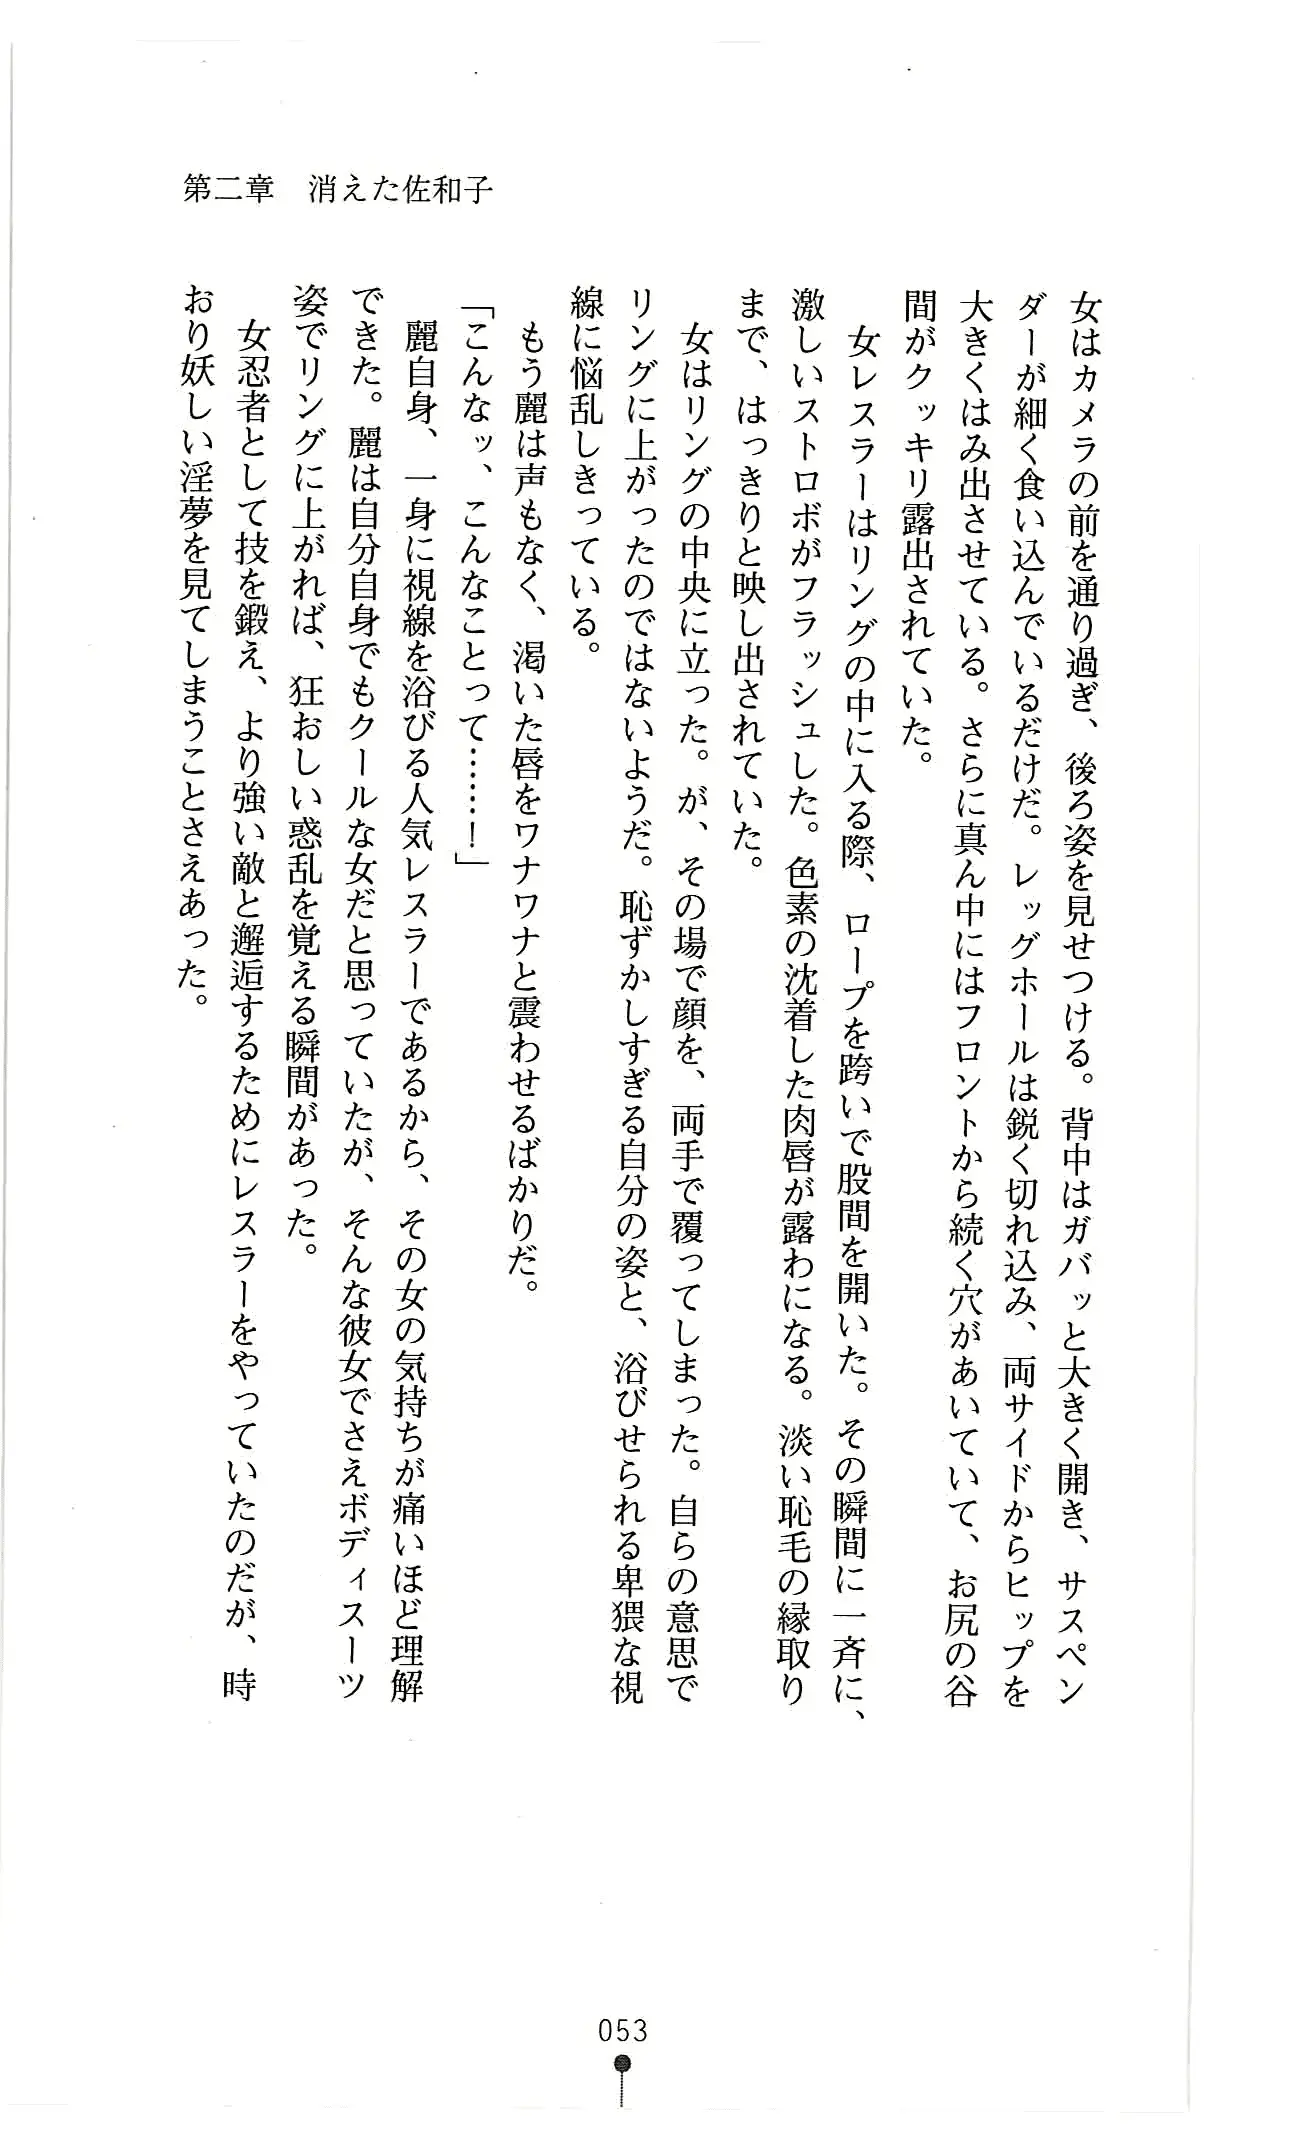 第二章　消えた佐和子
女はカメラの前を通り過ぎ、後ろ姿を見せつける。背中はガバッと大きく開き、サスペン
ダーが細く食い込んでいるだけだ。レッグホールは鋭く切れ込み、両サイドからヒップを
大きくはみ出させている。さらに真ん中にはフロントから続く穴があいていて、お尻の谷
間がクッキリ露出されていた。
　女レスラーはリングの中に入る際、ロープを跨いで股間を開いた。その瞬間に一斉に、
激しいストロボがフラッシュした。色素の沈着した肉唇が露わになる。淡い恥毛の縁取り
まで、はっきりと映し出されていた。
　女はリングの中央に立った。が、その場で顔を、両手で覆ってしまった。自らの意思で
リングに上がったのではないようだ。恥ずかしすぎる自分の姿と、浴びせられる卑猥な視
線に悩乱しきっている。
　もう麗は声もなく、渇いた唇をワナワナと震わせるばかりだ。
「こんなッ、こんなことって……！」
　麗自身、一身に視線を浴びる人気レスラーであるから、その女の気持ちが痛いほど理解
できた。麗は自分自身でもクールな女だと思っていたが、そんな彼女でさえボディスーツ
姿でリングに上がれば、狂おしい惑乱を覚える瞬間があった。
　女忍者として技を鍛え、より強い敵と邂逅するためにレスラーをやっていたのだが、時
おり妖しい淫夢を見てしまうことさえあった。
053